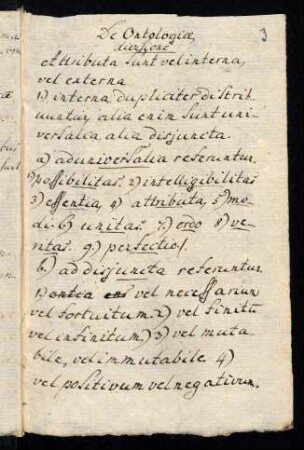 De Ontologiæ, 3
divisione
Attributa sunt vel interna,
vel externa
1.) interna dupliciter distrib
uuntur, alia enim sunt uni
versalia, alia disjuncta.
a) ad universalia referuntur.
1) possibilitas. 2) intelligibilitas
3) essentia, 4) attributa, 5) mo
di. 6) unitas. 7.) ordo 8) ve
ritas. 9.) perfectio/
b.) ad disjuncta referuntur.
1) vel necessarium
vel fortuitum. 2) vel finitū
vel infinitum, 3) vel muta
bile, vel immutabile. 4)
vel positivum vel negativum.